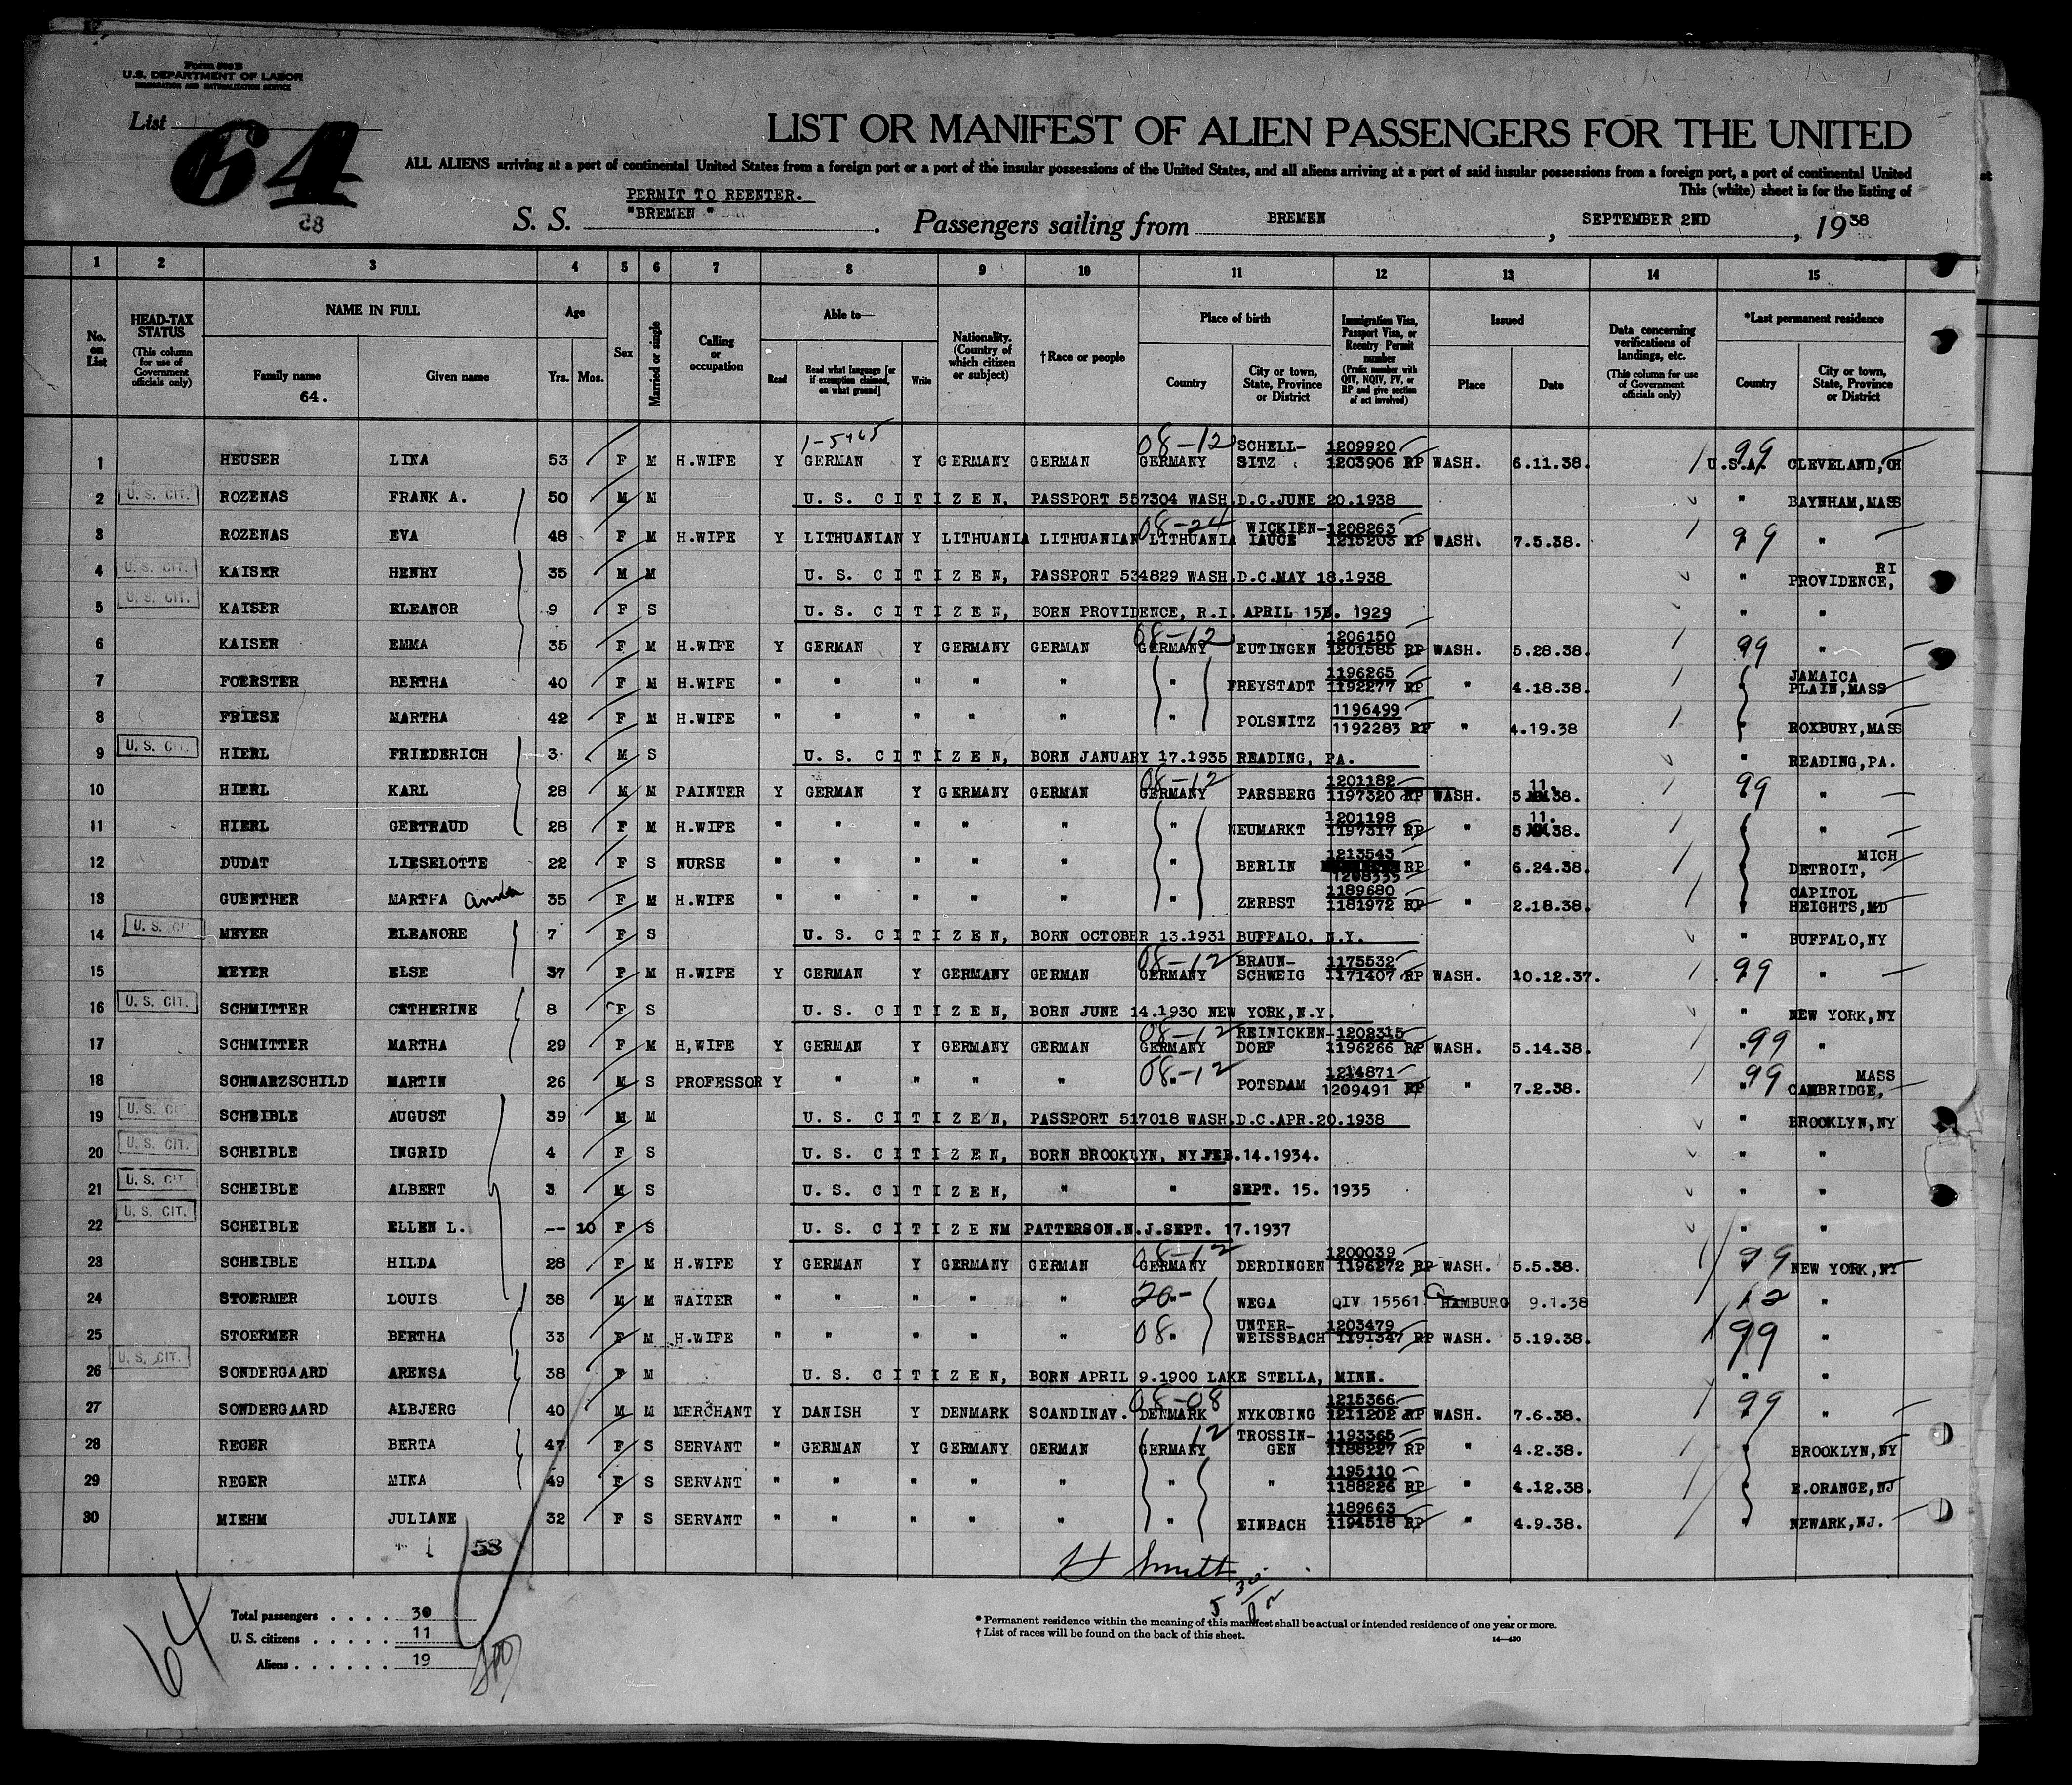 Form 500 B
U.S. DEPARTMENT OF LABOR
IMMIGRATION AND NATURALIZATION SERVICE
List 64
28
LIST OR MANIFEST OF ALIEN PASSENGERS FOR THE UNITED
ALL ALIENS arriving at a port of continental United States from a foreign port or a port of the insular possessions of the United States, and all aliens arriving at a port of said insular possessions from a foreign port, a port of continental United
This (white) sheet is for the listing of
PERMIT TO REENTER.
S. S. "BREMEN". Passengers sailing from BREMEN, SEPTEMBER 2ND, 1938
1 2 3 4 5 6 7 8 9 10 11 12 13 14 15
No. on List
HEAD-TAX STATUS (This column for use of Government officials only)
NAME IN FULL
Family name
64.
Given name
Age
Yrs. Mos.
Sex
Married or single
Calling or occupation
Able to—
Read
Read what language [or if exemption claimed, on what ground]
Write
Nationality. (Country of which citizen or subject)
†Race or people
Place of birth
Country
City or town, State, Province or District
Immigration Visa, Passport Visa, or Reentry Permit number (Prefix number with QIV, NQIV, PV, or RP and give section of act involved)
Issued
Place
Date
Data concerning verifications of landings, etc. (This column for use of Government officials only)
*Last permanent residence
Country
City or town, State, Province or District
1 HEUSER LINA 53 F M H.WIFE Y GERMAN Y GERMANY GERMAN 08-12 GERMANY SCHELL-SITZ 1209920 1203906 RP WASH. 6.11.38. U.S.A. 99 CLEVELAND,OH
2 U. S. CIT. ROZENAS FRANK A. 50 M M U. S. CITIZEN, PASSPORT 557304 WASH.D.C.JUNE 20.1938 " BAYNHAM,MASS
3 ROZENAS EVA 48 F M H.WIFE Y LITHUANIAN Y LITHUANIA LITHUANIAN 08-24 LITHUANIA WICKIEN-IAUCE 1208263 1215203 RP WASH. 7.5.38. 99 "
4 U. S. CIT. KAISER HENRY 35 M M U. S. CITIZEN, PASSPORT 534829 WASH.D.C.MAY 18.1938 " PROVIDENCE, RI
5 U. S. CIT. KAISER ELEANOR 9 F S U. S. CITIZEN, BORN PROVIDENCE, R.I. APRIL 15. 1929 " "
6 KAISER EMMA 35 F M H.WIFE Y GERMAN Y GERMANY GERMAN 08-12 GERMANY EUTINGEN 1206150 1201585 RP WASH. 5.28.38. 99 "
7 FOERSTER BERTHA 40 F M H.WIFE " " " " " " FREYSTADT 1196265 1192277 RP " 4.18.38. " JAMAICA PLAIN,MASS
8 FRIESE MARTHA 42 F M H.WIFE " " " " " " POLSNITZ 1196499 1192283 RP " 4.19.38 " ROXBURY,MASS
9 U. S. CIT. HIERL FRIEDERICH 3 M S U. S. CITIZEN, BORN JANUARY 17.1935 READING, PA. " READING,PA.
10 HIERL KARL 28 M M PAINTER Y GERMAN Y GERMANY GERMAN 08-12 GERMANY PARSBERG 1201182 1197320 RP WASH. 5.11.38. 99 "
11 HIERL GERTRAUD 28 F M H.WIFE " " " " " " NEUMARKT 1201198 1197317 RP " 5.11.38. " "
12 DUDAT LIESELOTTE 22 F S NURSE " " " " " " BERLIN 1213543 1208335 RP " 6.24.38. " DETROIT, MICH
13 GUENTHER MARTHA Anna 35 F M H.WIFE " " " " " " ZERBST 1189680 1181972 RP " 2.18.38. " CAPITOL HEIGHTS,MD
14 U. S. CIT. MEYER ELEANORE 7 F S U. S. CITIZEN, BORN OCTOBER 13.1931 BUFFALO, N.Y. " BUFFALO,NY
15 MEYER ELSE 37 F M H.WIFE Y GERMAN Y GERMANY GERMAN 08-12 GERMANY BRAUN-SCHWEIG 1175532 1171407 RP WASH. 10.12.37. 99 "
16 U. S. CIT. SCHMITTER CETHERINE 8 F S U. S. CITIZEN, BORN JUNE 14.1930 NEW YORK,N.Y. " NEW YORK,NY
17 SCHMITTER MARTHA 29 F M H,WIFE Y GERMAN Y GERMANY GERMAN 08-12 GERMANY REINICKEN-DORF 1202315 1196266 RP WASH. 5.14.38. "99 "
18 SCHWARZSCHILD MARTIN 26 M S PROFESSOR Y " " " " 08-12 " POTSDAM 1214871 1209491 RP " 7.2.38. "99 CAMBRIDGE, MASS
19 U. S. CIT. SCHEIBLE AUGUST 39 M M U. S. CITIZEN, PASSPORT 517018 WASH.D.C.APR.20.1938 " BROOKLYN,NY
20 U. S. CIT. SCHEIBLE INGRID 4 F S U. S. CITIZEN, BORN BROOKLYN, NY FEB.14.1934. " "
21 U. S. CIT. SCHEIBLE ALBERT 3 M S U. S. CITIZEN, " " SEPT. 15. 1935 " "
22 U. S. CIT. SCHEIBLE ELLEN L. -- 10 F S U. S. CITIZENM PATTERSON.N.J.SEPT. 17.1937 " "
23 SCHEIBLE HILDA 28 F M H.WIFE Y GERMAN Y GERMANY GERMAN 08-12 GERMANY DERDINGEN 1200039 1196272 RP WASH. 5.5.38. 99 NEW YORK,NY
24 STOERMER LOUIS 38 M M WAITER " " " " " 20- " WEGA QIV 15561 HAMBURG 9.1.38 12 "
25 STOERMER BERTHA 33 F M H.WIFE " " " " " 08 " UNTER-WEISSBACH 1203479 1191347 RP WASH. 5.19.38. 99 "
26 U. S. CIT. SONDERGAARD ARENSA 38 F M U. S. CITIZEN, BORN APRIL 9.1900 LAKE STELLA, MINN. " "
27 SONDERGAARD ALBJERG 40 M M MERCHANT Y DANISH Y DENMARK SCANDINAV. 08-08 DENMARK NYKOBING 1215366 1211202 RP WASH. 7.6.38. 99 "
28 REGER BERTA 47 F S SERVANT " GERMAN Y GERMANY GERMAN 12 GERMANY TROSSIN-GEN 1193365 1188227 RP " 4.2.38. " BROOKLYN,NY
29 REGER MINA 49 F S SERVANT " " " " " " " 1195110 1188226 RP " 4.12.38. " E.ORANGE,NJ
30 MIEHM JULIANE 32 F S SERVANT " " " " " " EINBACH 1189663 1194518 RP " 4.9.38. " NEWARK,NJ.
53
H Smith
64
Total passengers . . . . 30
U. S. citizens . . . . . 11
Aliens . . . . . . 19
* Permanent residence within the meaning of this manifest shall be actual or intended residence of one year or more.
† List of races will be found on the back of this sheet.
14—430